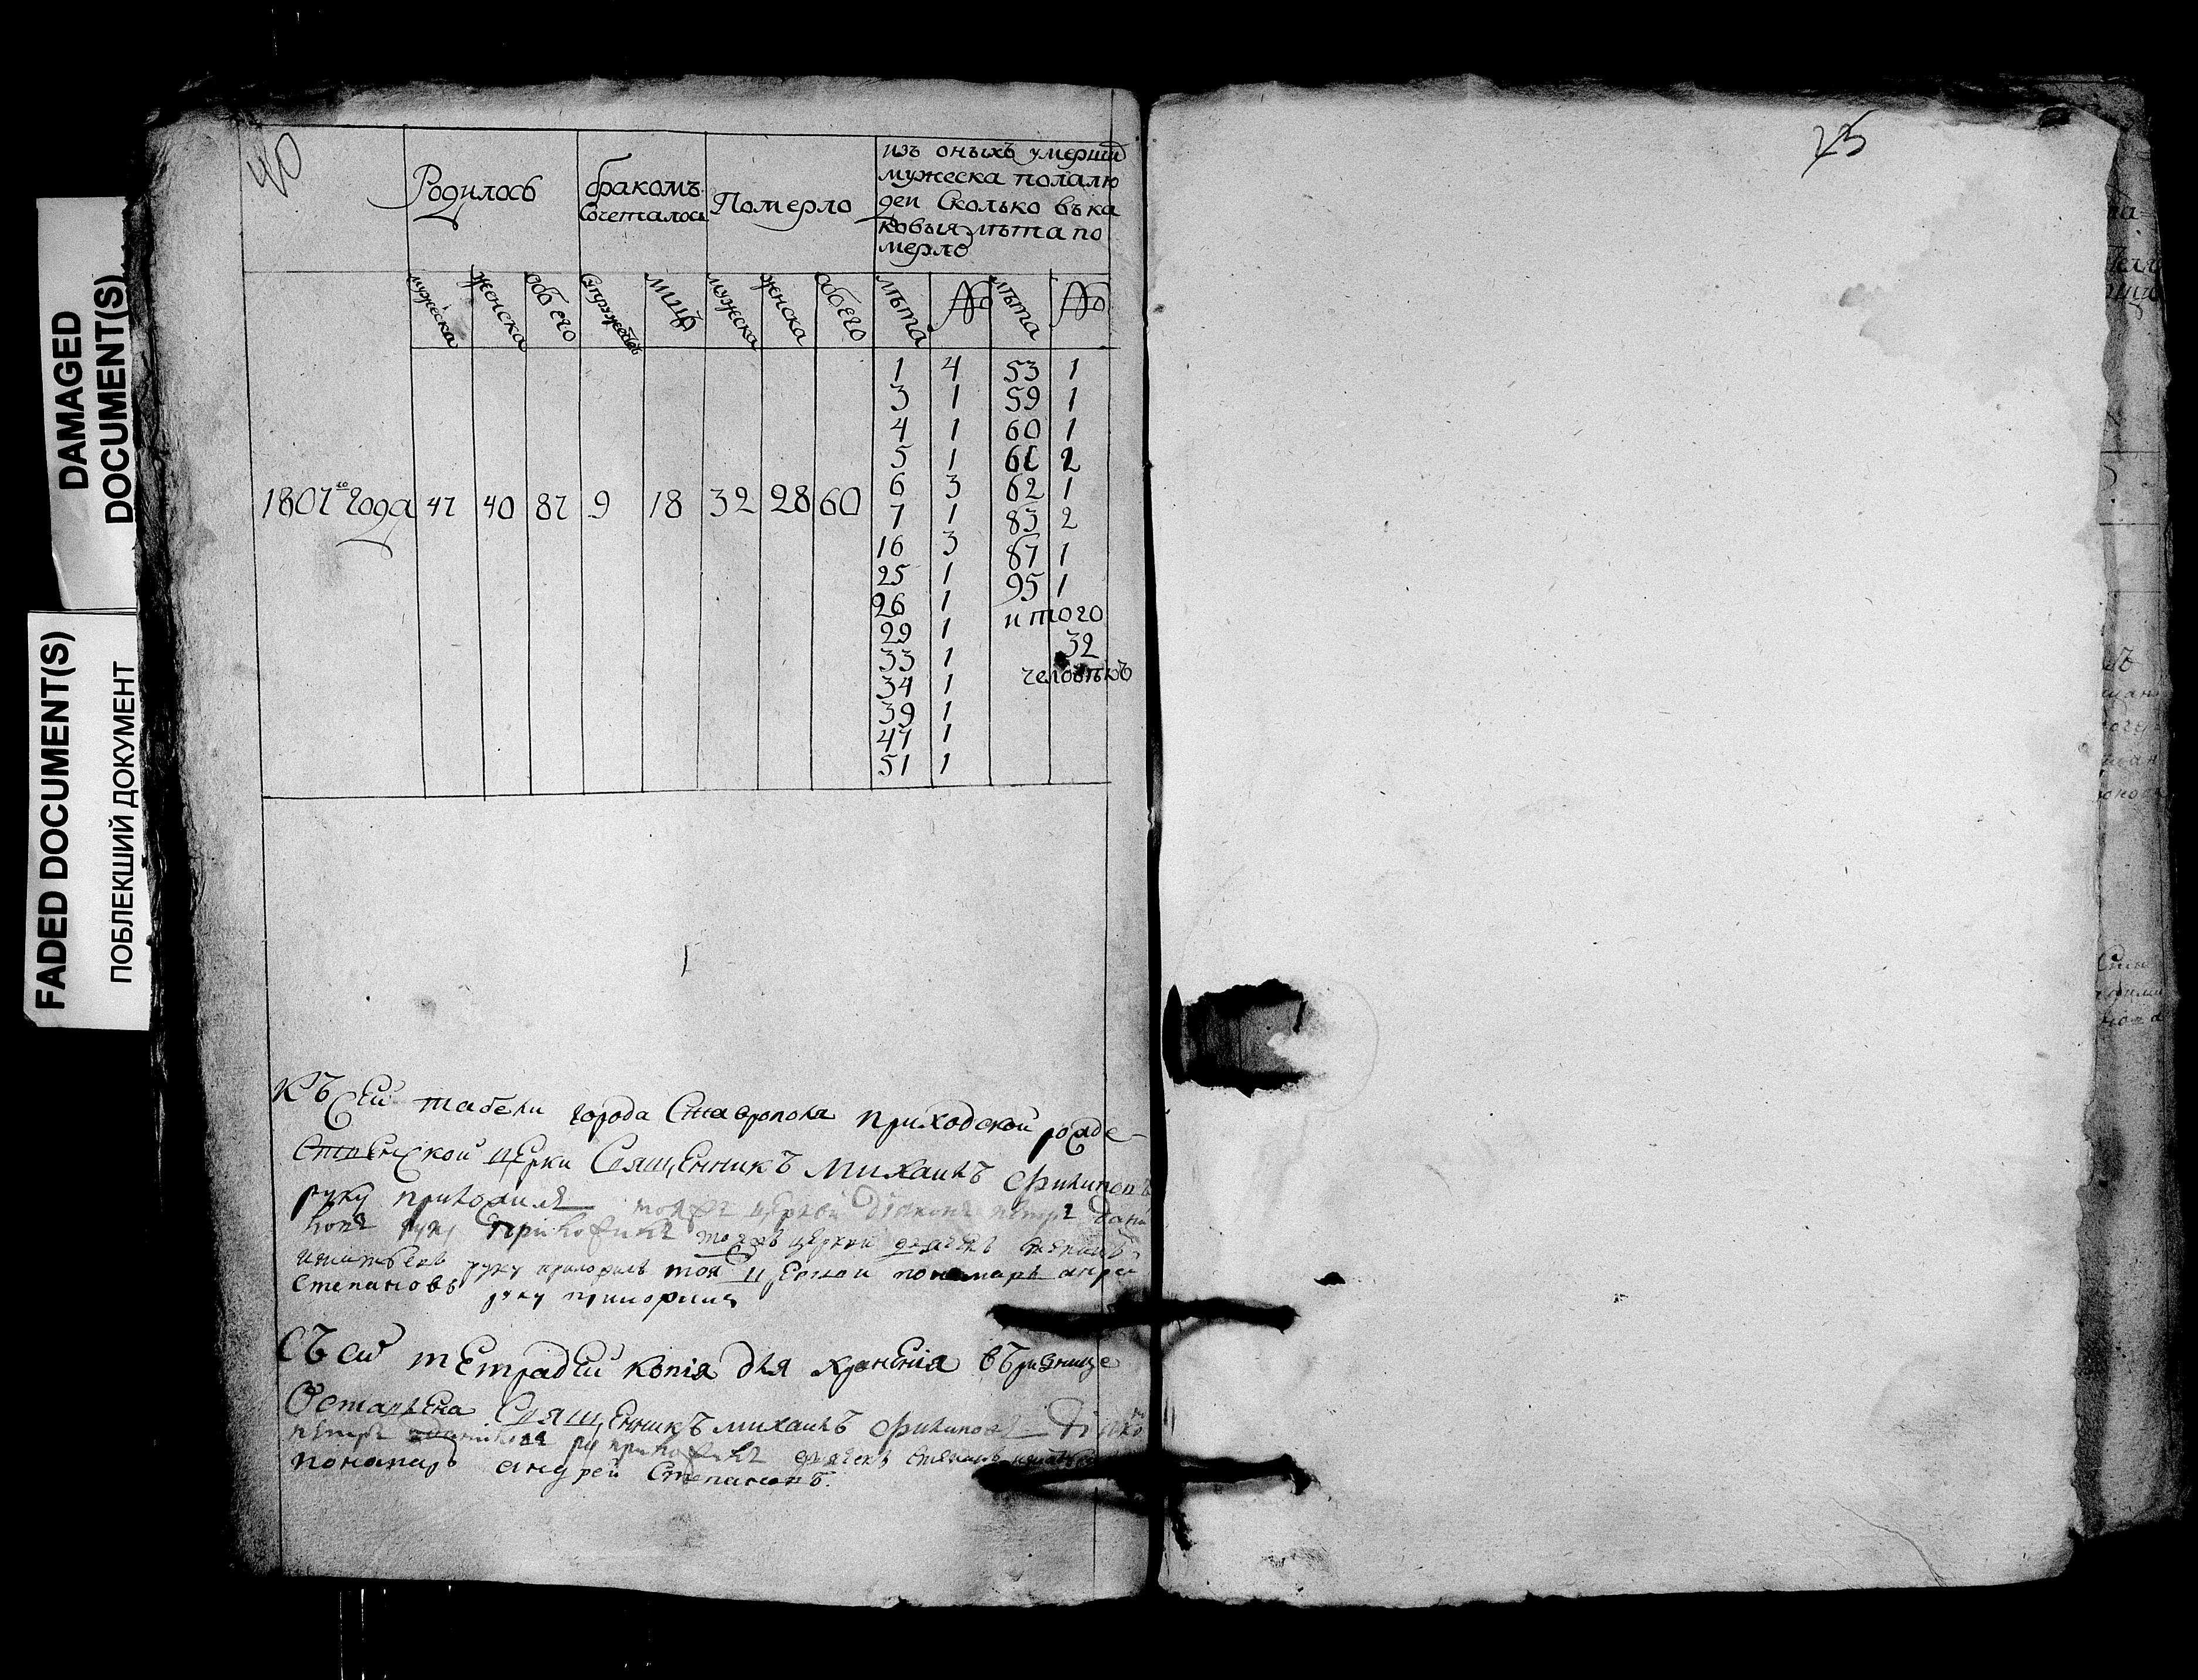 DAMAGED
DOCUMENT(S)
FADED DOCUMENT(S)
ПОБЛЕКШИЙ ДОКУМЕНТ
40
Родилось
бракомъ
Сочеталось
Померло
изъ оныхъ умерши
мужеска полалю
деи Сколько въка
ковыя лѣта по
мерло
мужеска женска обѣего Супружебствъ лицъ мужска женска обѣего лѣта № лѣта №
1807го года 47 40 87 9 18 32 28 60
1 4 53 1
3 1 59 1
4 1 60 1
5 1 61 2
6 3 62 1
7 1 83 2
16 3 87 1
25 1 95 1
26 1 итого
29 1 32
33 1 человѣкъ
34 1
39 1
47 1
51 1
Къ сей табели города Ставрополя приходской рожде-
ственской церкви Священникъ михаилъ филиповъ
руку приложилъ тояже церкви дiаконъ петръ дани
ловъ руку приложилъ тояжъ церкви дьячекъ степанъ
руку приложилъ тоя церкви пономарь андреи
степановъ руку приложилъ
Съ сей тетрадей копiя для храненiя въ ризнице
Оставлена Священникъ михаилъ филиповъ Дiяконъ
петръ даниловъ приложилъ дьячекъ степанъ
пономарь андрей Степановъ.
25